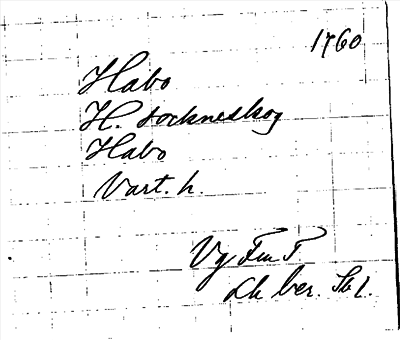 1760
Habo
H. sockneskog
Habo
Vart. h.
Vg Fm T.
Lk ber. Sk 1.